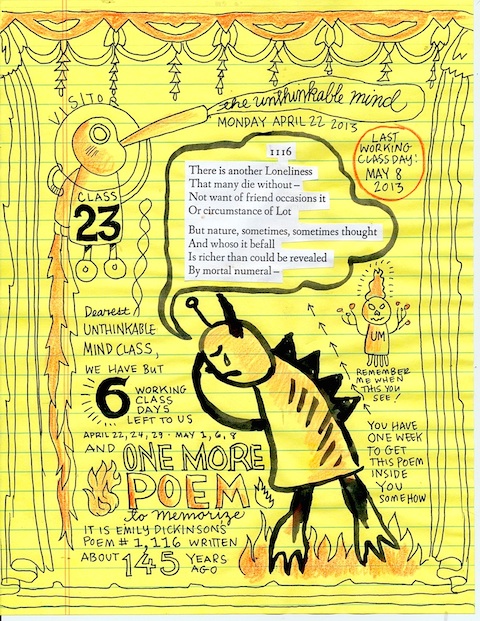 VISITOR
the unthinkable mind
MONDAY APRIL 22 2013
LAST
WORKING
CLASS DAY:
MAY 8
2013
CLASS
23
1116
There is another Loneliness
That many die without –
Not want of friend occasions it
Or circumstance of Lot
But nature, sometimes, sometimes thought
And whoso it befall
Is richer than could be revealed
By mortal numeral –
Dearest
UNTHINKABLE
MIND CLASS,
WE HAVE BUT
6 WORKING
CLASS
DAYS
LEFT TO US
APRIL 22, 24, 29 - MAY 1, 6, 8
AND ONE MORE
POEM
to Memorize
IT IS EMILY DICKINSON'S
POEM # 1,116 WRITTEN
ABOUT 145 YEARS
AGO
UM
REMEMBER
ME WHEN
THIS YOU
SEE!
YOU HAVE
ONE WEEK
TO GET
THIS POEM
INSIDE
YOU
SOMEHOW